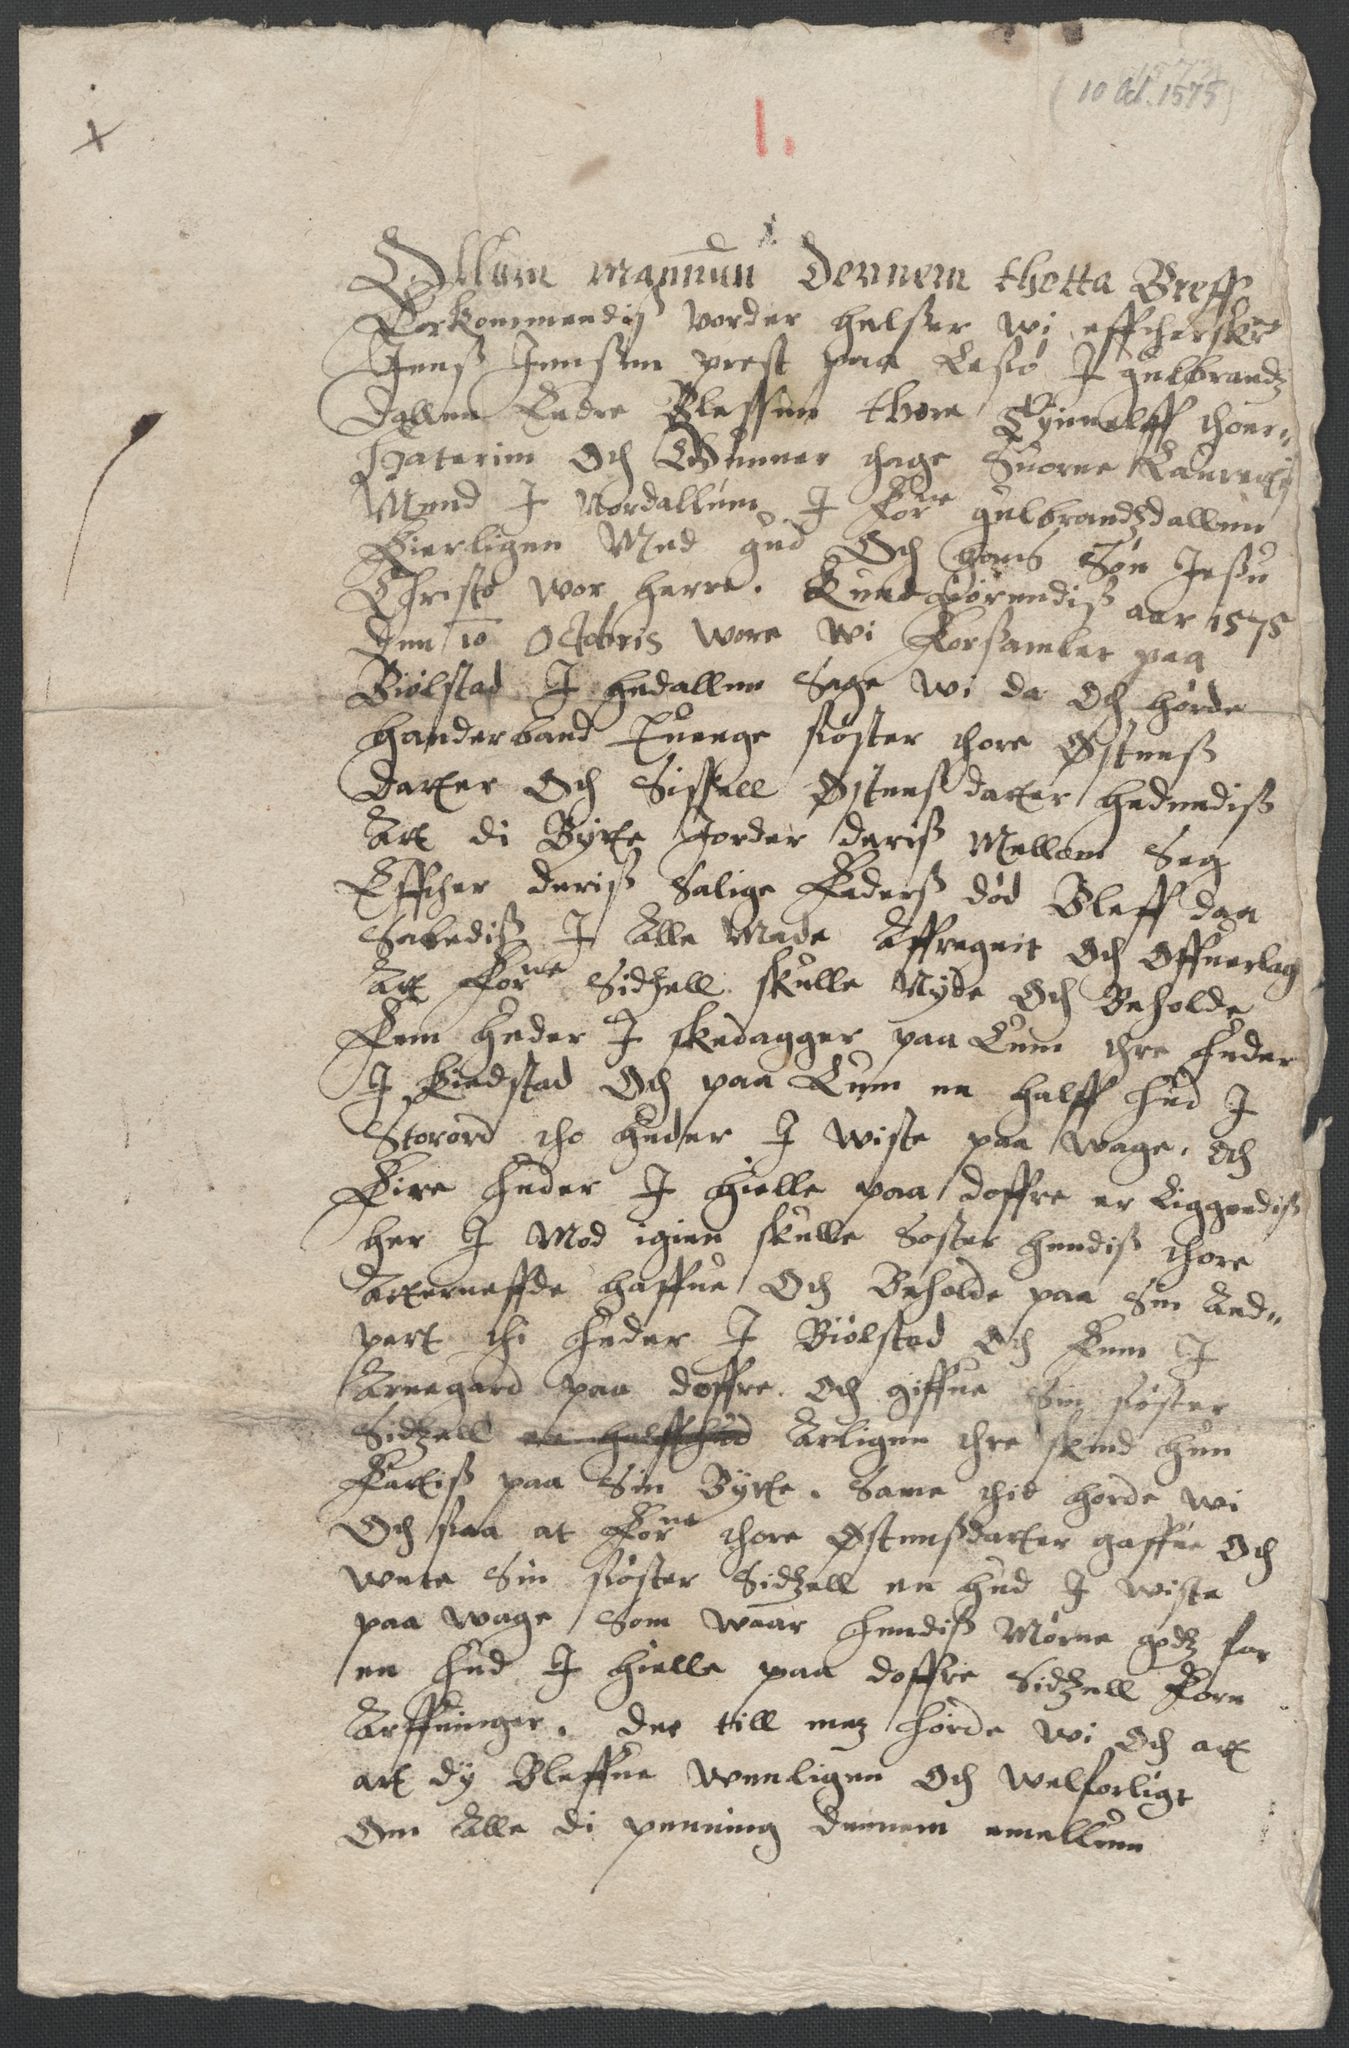 (10 Oct. 1575)
1.
Ollum mannum dennem thetta Breff
Forkommendiß vorder helser wi effcherskr
Jenß Jenssen prest paa Lesiø J gulbrandz
dallen Endre Blessem thore Synneleff thoer
Haterim Och Gunner hage Suorne Laurettis
Mend J Nordallum J Forne gulbrandzdallenn
Kierligen Med gud Och hans Søn Jesu
Christo wor herre. Kundgiørendiß aar 1575
den 10 Octobris wore wi Forsamlet paa
Biølstad J hedallen Sage wi da Och hørde
handerband Tuenge siøster thore Østenß
datter Och Sissell Østenßdatter hedendiß
Att di Bytte Jorder deriß Mellom Seg
Effther deriß Salige Faderß død Bleff daa
Sabediß J Alle Made Affregnit Och Offuerlag
Att Forne Sidzell skulle Nyde Och Beholde
Fem huder J skedagger paa Lum thre huder
J Biedstad Och paa Lum en halff hud J
Storord tho huder J wiste paa wage. Och
Fire huder J hielle paa doffre er Liggendiß
her J Mod igien skulle Søster hendiß thore
Atterneffde haffue Och Beholde paa Sin Lad-
part thi huder J Biølstad Och Fem J
Arnegard paa doffre. Och giffue Sin siøster
Sidzell en halff hud Arligen thre skind hun
Fattiß paa Sin Bytte. Same thid hørde wi
Och saa at Forne thore Østenßdatter gaffue Och
wnte Sin siøster Sidzell en hud J wiste
paa wage Som waar hendiß Mørne godz for
en hud J hielle paa doffre Sidzell Forne
Arffninger. der till mez hørde wi Och att
att dy Bleffue wenligen Och welforligt
Om Alle di penning dennem emellum